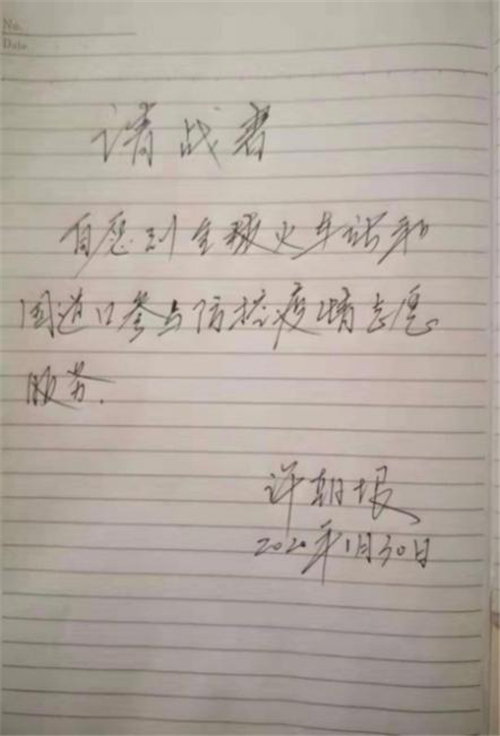 No.
Date
请战者
自愿到全椒火车站和
国道口参与防控疫情志愿
服务.
许朝垠
2020年1月30日